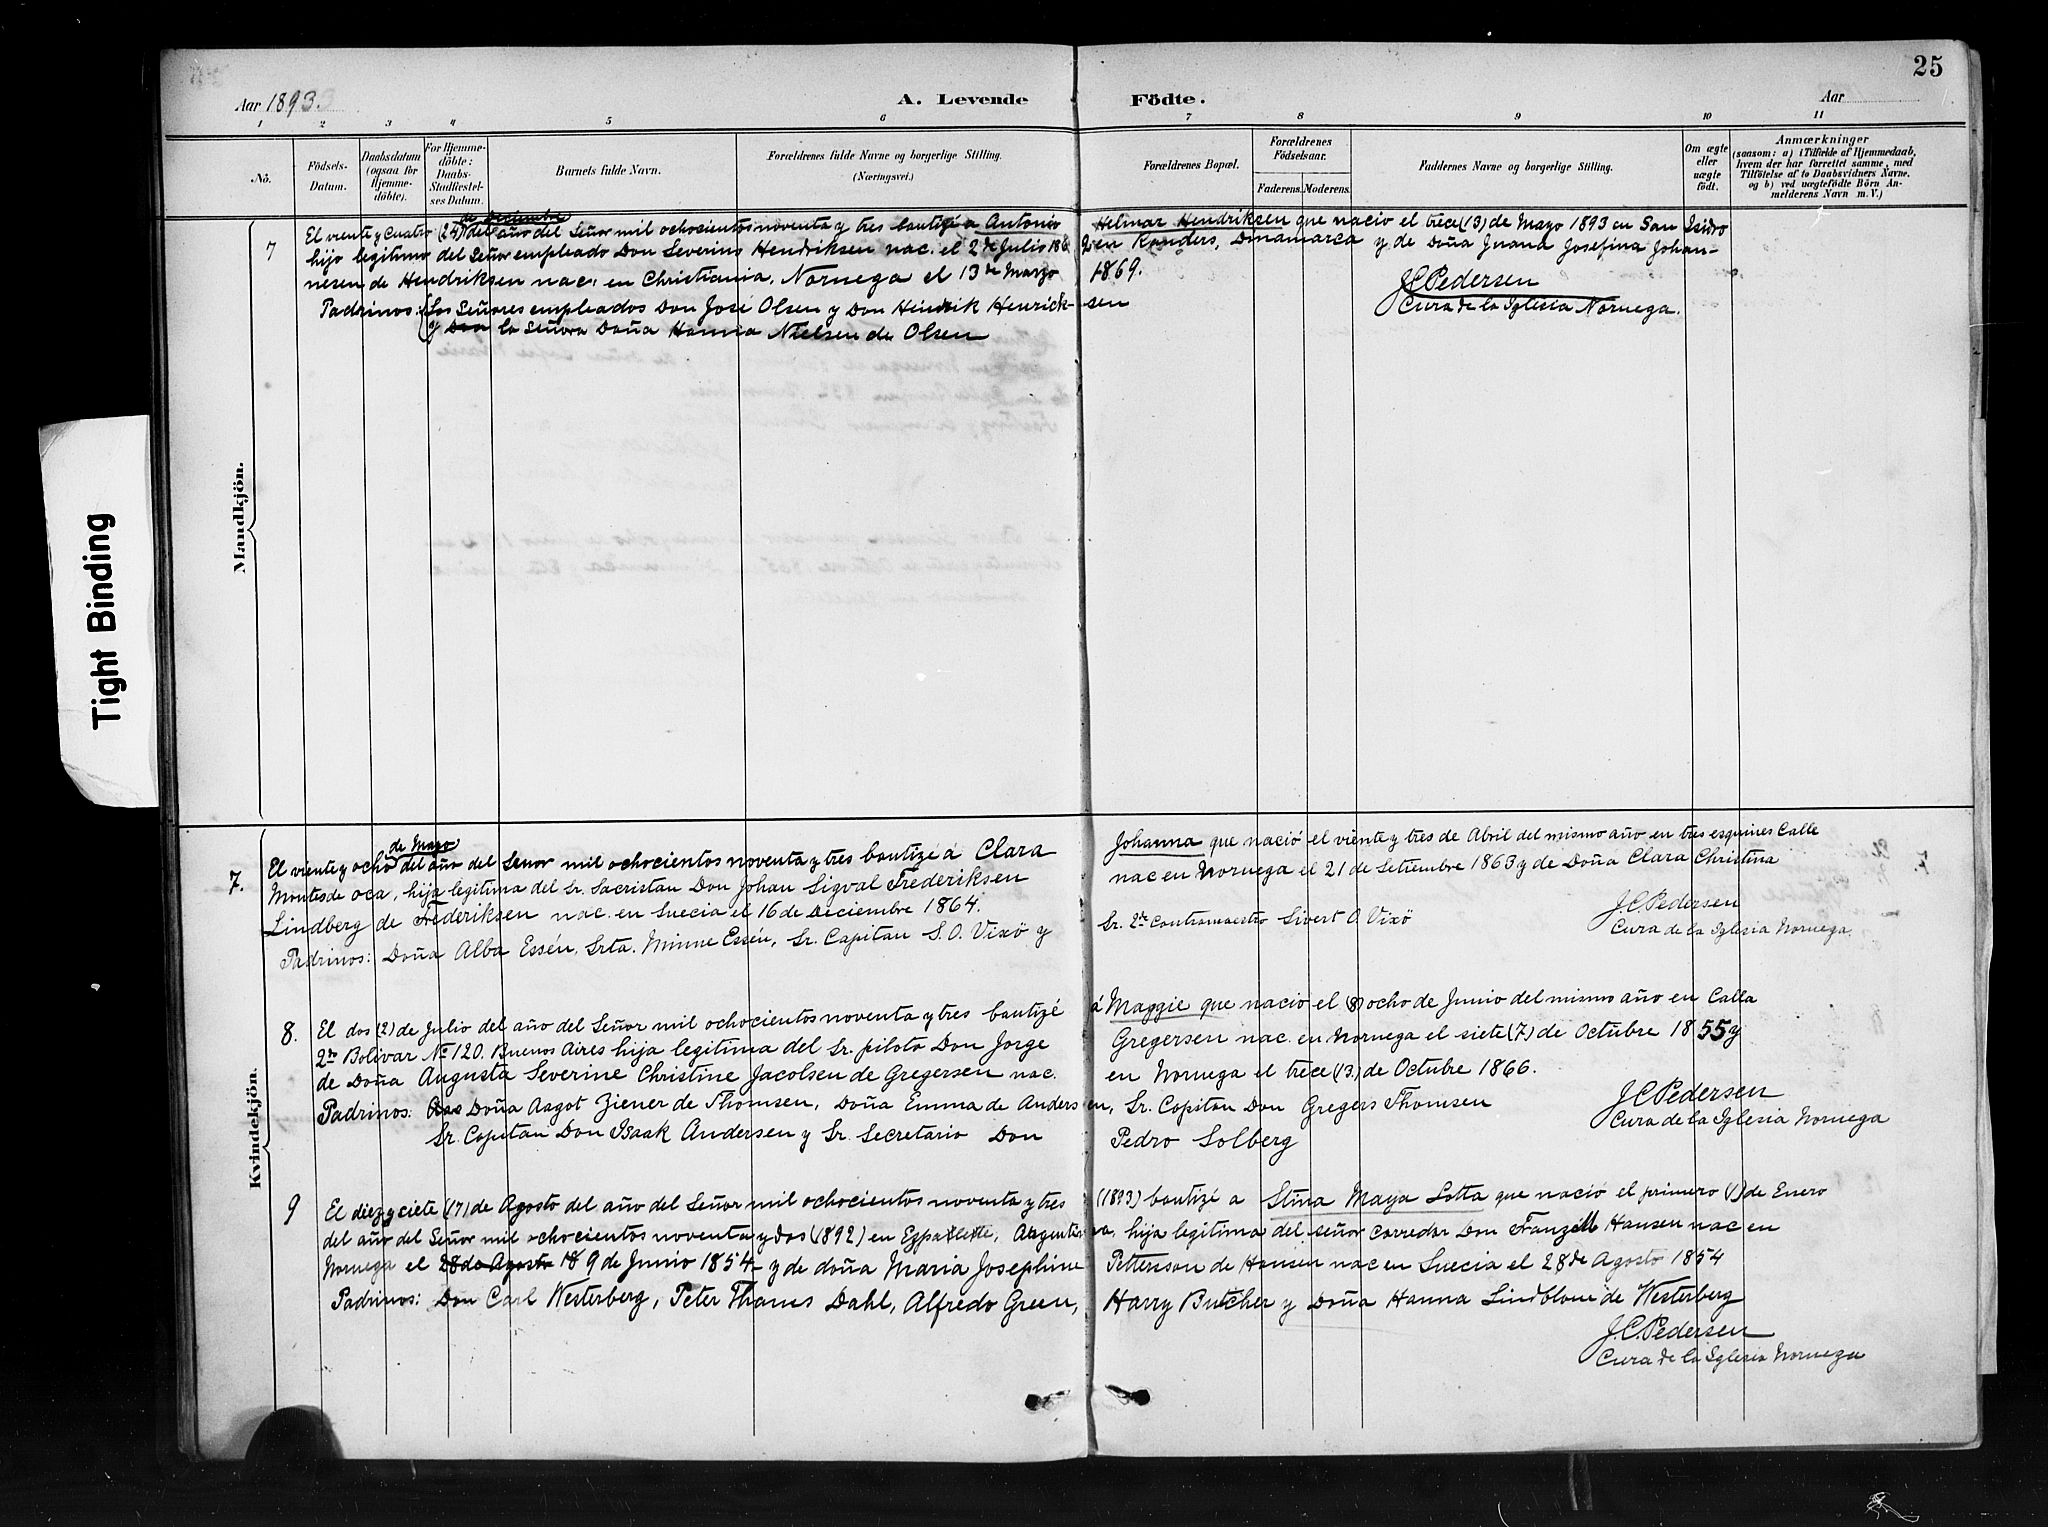 25
Aar 1893.
A. Levende Födte.
Aar
1 2 3 4 5 6 7 8 9 10 11
No.
Födsels-Datum.
Daabsdatum (ogsaa for Hjemme-döbte).
For Hjemme-döbte: Daabs-Stadfæstel-ses Datum.
Barnets fulde Navn.
Forældrenes fulde Navne og borgerlige Stilling. (Næringsvei.)
Forældrenes Bopæl.
Forældrenes Födselsaar.
Faderens. Moderens.
Faddernes Navne og borgerlige Stilling.
Om ægte eller uægte födt.
Anmærkninger (saasom: a) i Tilfælde af Hjemmedaab, hvem der har forrettet samme, med Tilföielse af to Daabsvidners Navne. og b) ved uægtefödte Börn An-melderens Navn m. V.)
Mandkjön.
de Diciembre
7 El viente y cuatro (24) del año del Señor mil ochocientos noventa y tres bautizé a Antonio Helmar Hendriksen que nacio el trece (13) de Mayo 1893 en San Isidro
hijo legitimo del Señor empleado Don Severius Hendriksen nac. el 2 de Julio 186 en Randers, Dinamarca y de Doña Juana Josefina Johan-
nesen de Hendriksen nac. en Christiania, Noruega el 13 de Marzo 1869.
J.C. Pedersen
Padrinos: Los Señores empleados Don José Olsen y Don Hendrik Henrick-sen
Cura de la Iglesia Noruega.
y Don la Señora Doña Hanna Nielsen de Olsen
Tight Binding
Kvindekjön.
de Mayo
7. El viente y ocho del año del Senor mil ochocientos noventa y tres bautize á Clara Johanna que nació el viente y tres de Abril del mismo año en tres esquines Calle
Montes de oca, hija legitima del Sr. Sacristan Don Johan Sigval Frederiksen nac en Noruega el 21 de Settiembre 1863 y de Doña Clara Christina
Lindberg de Frederiksen nac. en Suecia el 16 de Deciembre 1864.
J.C. Pedersen
Padrinos: Doña Alba Essén, Srta. Minne Essén, Sr. Capitan S. O. Vixö y Sr. 2do Contramaestro Sivert O Vixö
Cura de la Iglesia Noruega.
8. El dos (2) de Julio del año del Señor mil ochocientos noventa y tres bautizé á Maggie que nacio el (8) ocho de Junio del mismo año en Calla
Bolivar No 120. Buenos Aires hija legitima del Sr. piloto Don Jorge Gregersen nac. en Noruega el siete (7) de Octubre 1855 y
de Doña Augusta Severine Christine Jacolsen de Gregersen nac. en Noruega el trece (13.) de Octubre 1866.
Padrinos: Doña Aagot Ziener de Thomsen, Doña Emma de Andersen, Sr. Capitan Don Gregers Thomsen
J.C. Pedersen
Cura de la Iglesia Noruega
Sr. Capitan Don Isaak Andersen y Sr. Secretario Don Pedro Solberg
9 El diez y ciete (17) de Agosto del año del Señor mil ochocientos noventa y tres (1893) bautizé a Stina Maya Lotta que nació el primero (1) de Enero
del año del Señor mil ochocientos noventa y dos (1892) en Argentina, hija legitima del señor corredor Don Hansen nac en
Noruega el 28 de Agosto 18 9 de Junio 1854 y de doña Maria Josephine Petterson de Hansen nac en Suecia el 28 de Agosto 1854
Padrinos: Don Carl Westerberg, Peter Thoms Dahl, Alfredo Green, Harry Butcher y Doña Hanna Lindblom de Westerberg
J.C. Pedersen
Cura de la Iglesia Noruega